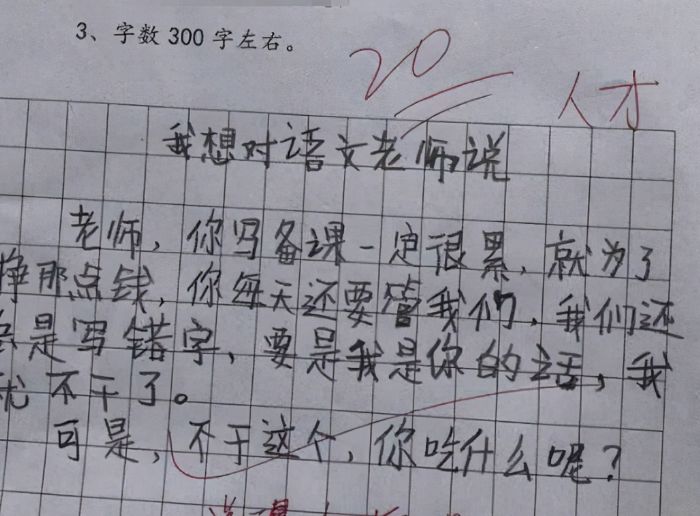 3、字数 300 字左右。
20
人才
我想对语文老师说
老师，你写备课一定很累，就为了
挣那点钱，你每天还要管我们，我们还
是写错字，要是我是你的话，我
就不干了。
可是，不干这个，你吃什么呢？